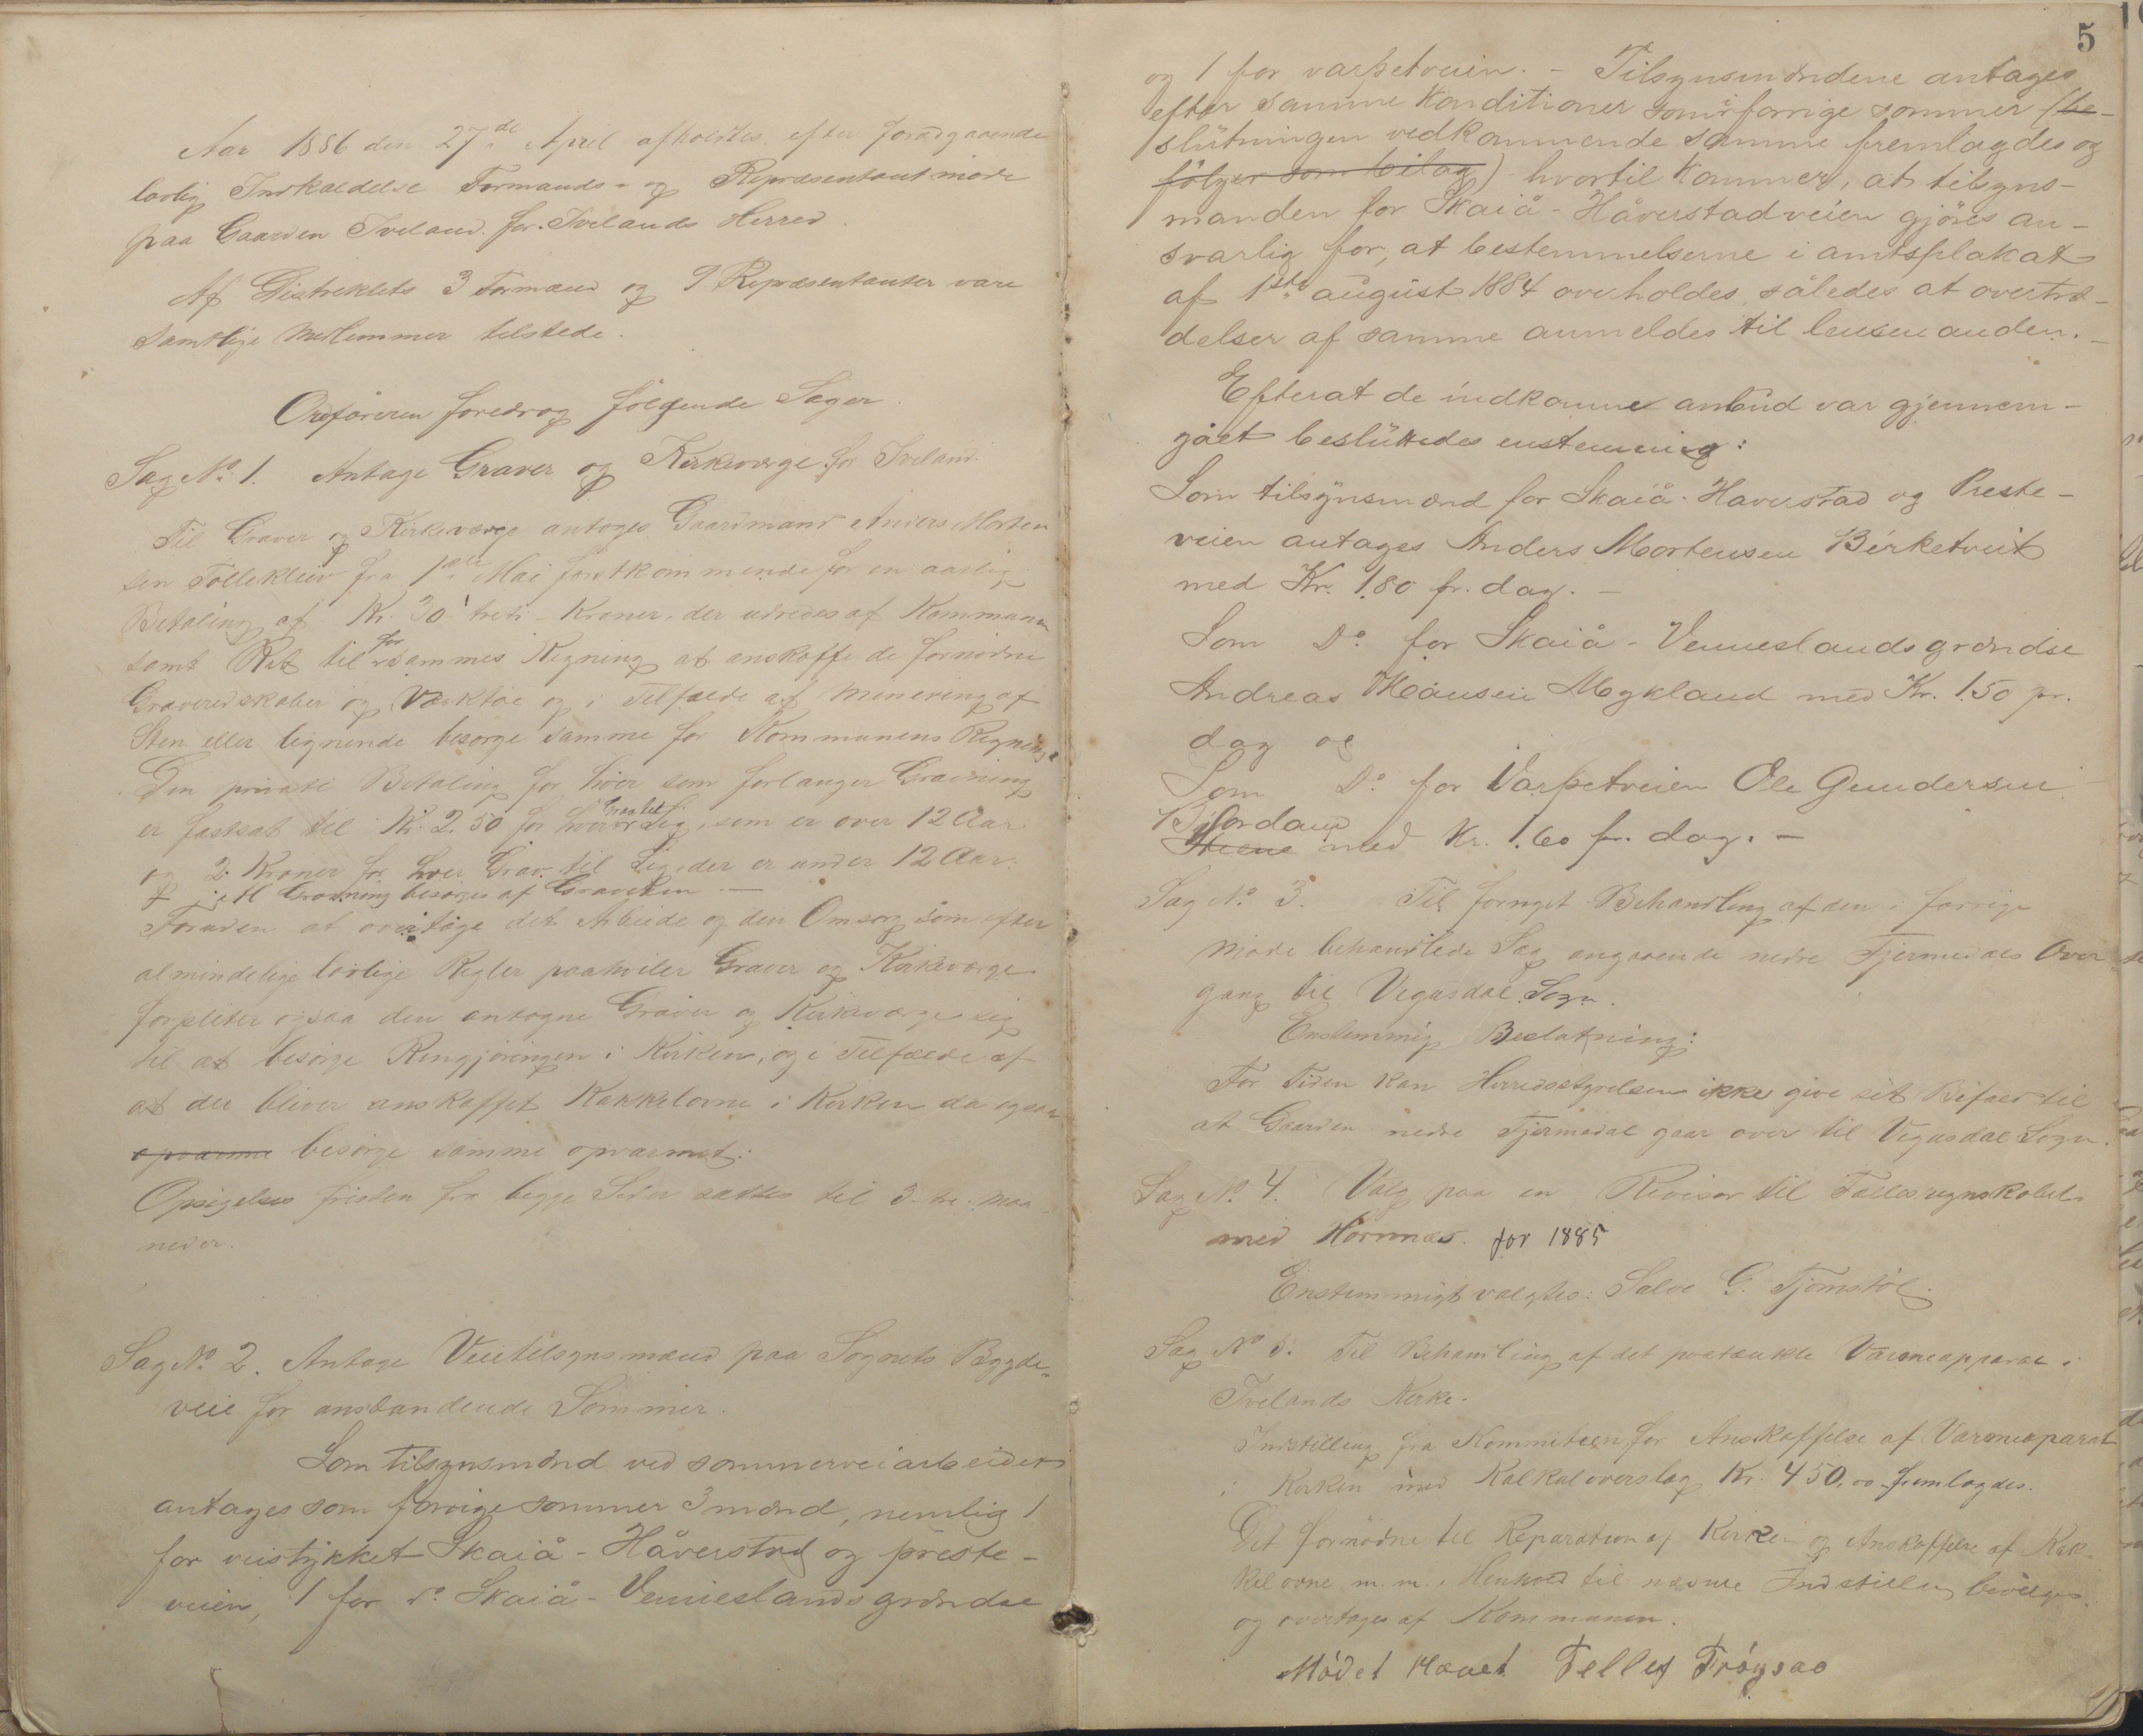 Aar 1886 den 27de April afholdtes efter foradgaaende
lovlig Indkaldelse Formands- og Repræsentantmøde
paa Gaarden Iveland for Ivelands Herred.
Af Distriktets 3 Formænd og 9 Repræsentanter vare
samtlige Medlemmer tilstede.
Ordføreren foredrog følgende Sager.
Sag No. 1. Antage Graver og Kirkeværge for Iveland.
Til Graver og Kirkeværge antoges Gaardmand Anders Morten
sen Tollekleiv fra 1ste Mai førstkommende for en aarlig
Betaling af Kr. 30 treti Kroner, der udredes af Kommunen
samt Ret til for sammes Regning at anskaffe de fornødne
Graveredskaber og Værktøe og i Tilfælde af Minering af
Sten eller lignende besørge samme for Kommunens Regning.
Den private Betaling for hver som forlanger Gravning
er fastsat til Kr. 2.50 for hver Grav til Lig, som er over 12 Aar
og 2 Kroner for hver Grav til Lig, der er under 12 Aar.
Gravning besørges af Graveren. —
Foruden at overtage det Arbeide og den Omsorg som efter
almindelige lovlige Regler paahviler Graver og Kirkeværge
forpliter ogsaa den antagne Graver og Kirkeværge sig
til at besørge Rengjøringen i Kirken, og i Tilfælde af
at der bliver anskaffet Kakkelovne i Kirken da ogsaa
opvarme besørge samme opvarmet.
Opsigelses fristen fra begge Sider sættes til 3 tre Maa
neder.
Sag No. 2. Antage Veitilsynsmænd paa Sognets Bygde-
veie for anstandende Sommer.
Som tilsynsmænd ved sommerveiarbeidet
antages som forrige sommer 3 mænd, nemlig 1
for veistykket Skaiå - Håverstad og preste-
veien, 1 for do. Skaiå - Venneslands grændse
5
og 1 for varpetveien. - Tilsynsmændene antages
efter samme konditioner som i forrige sommer (be-
slutningen vedkommende samme fremlagdes og
følger som bilag) hvortil kommer, at tilsyns-
manden for Skaiå - Håverstadveien gjøres an-
svarlig for, at bestemmelserne i amtsplakat
af 1ste august 1884 overholdes, således at overtræ-
delser af samme anmeldes til lensmanden. -
Efterat de indkomne anbud var gjennem-
gået besluttedes enstemmig:
Som tilsynsmænd for Skaiå - Haverstad og Preste-
veien antages Anders Mortensen Birketveit
med Kr. 1.80 pr. dag. -
Som Do. for Skaiå - Vennesland s grændse
Andreas Hansen Mykland med Kr. 1.50 pr.
dag og
Som Do. for Varpetveien Ole Gundersen
Bjordand
med Kr. 1.60 pr. dag. -
Sag No. 3. Til fornyet Behandling af den i forrige
Møde behandlede Sag angaaende nedre Fjermedals Over
gang til Vegusdal Sogn.
Enstemmig Beslutning:
For Tiden kan Herredsstyrelsen ikke give sit Bifald til
at Gaarden nedre Fjermedal gaar over til Vegusdal Sogn.
Sag No. 4. Valg paa en Revisor til Fællesregnskabet
med Hornnæs. for 1885
Enstemmigt valgtes: Salve G. Tjomstøl.
Sag No 5. Til Behandling af det paatænkte Varmeapparat i
Ivelands Kirke.
Indstilling fra Kommiteen for Anskaffelse af Varmeaparat
i Kirken med Kalkuloverslag Kr. 450.00 fremlagdes.
Det fornødne til Reparation af Kirken og Anskaffelse af Kak-
kelovne m. m. i Henhold til nævnte Indstilling bevilges
og overtages af Kommunen.
Mødet Hævet. Tellef Frøysaa